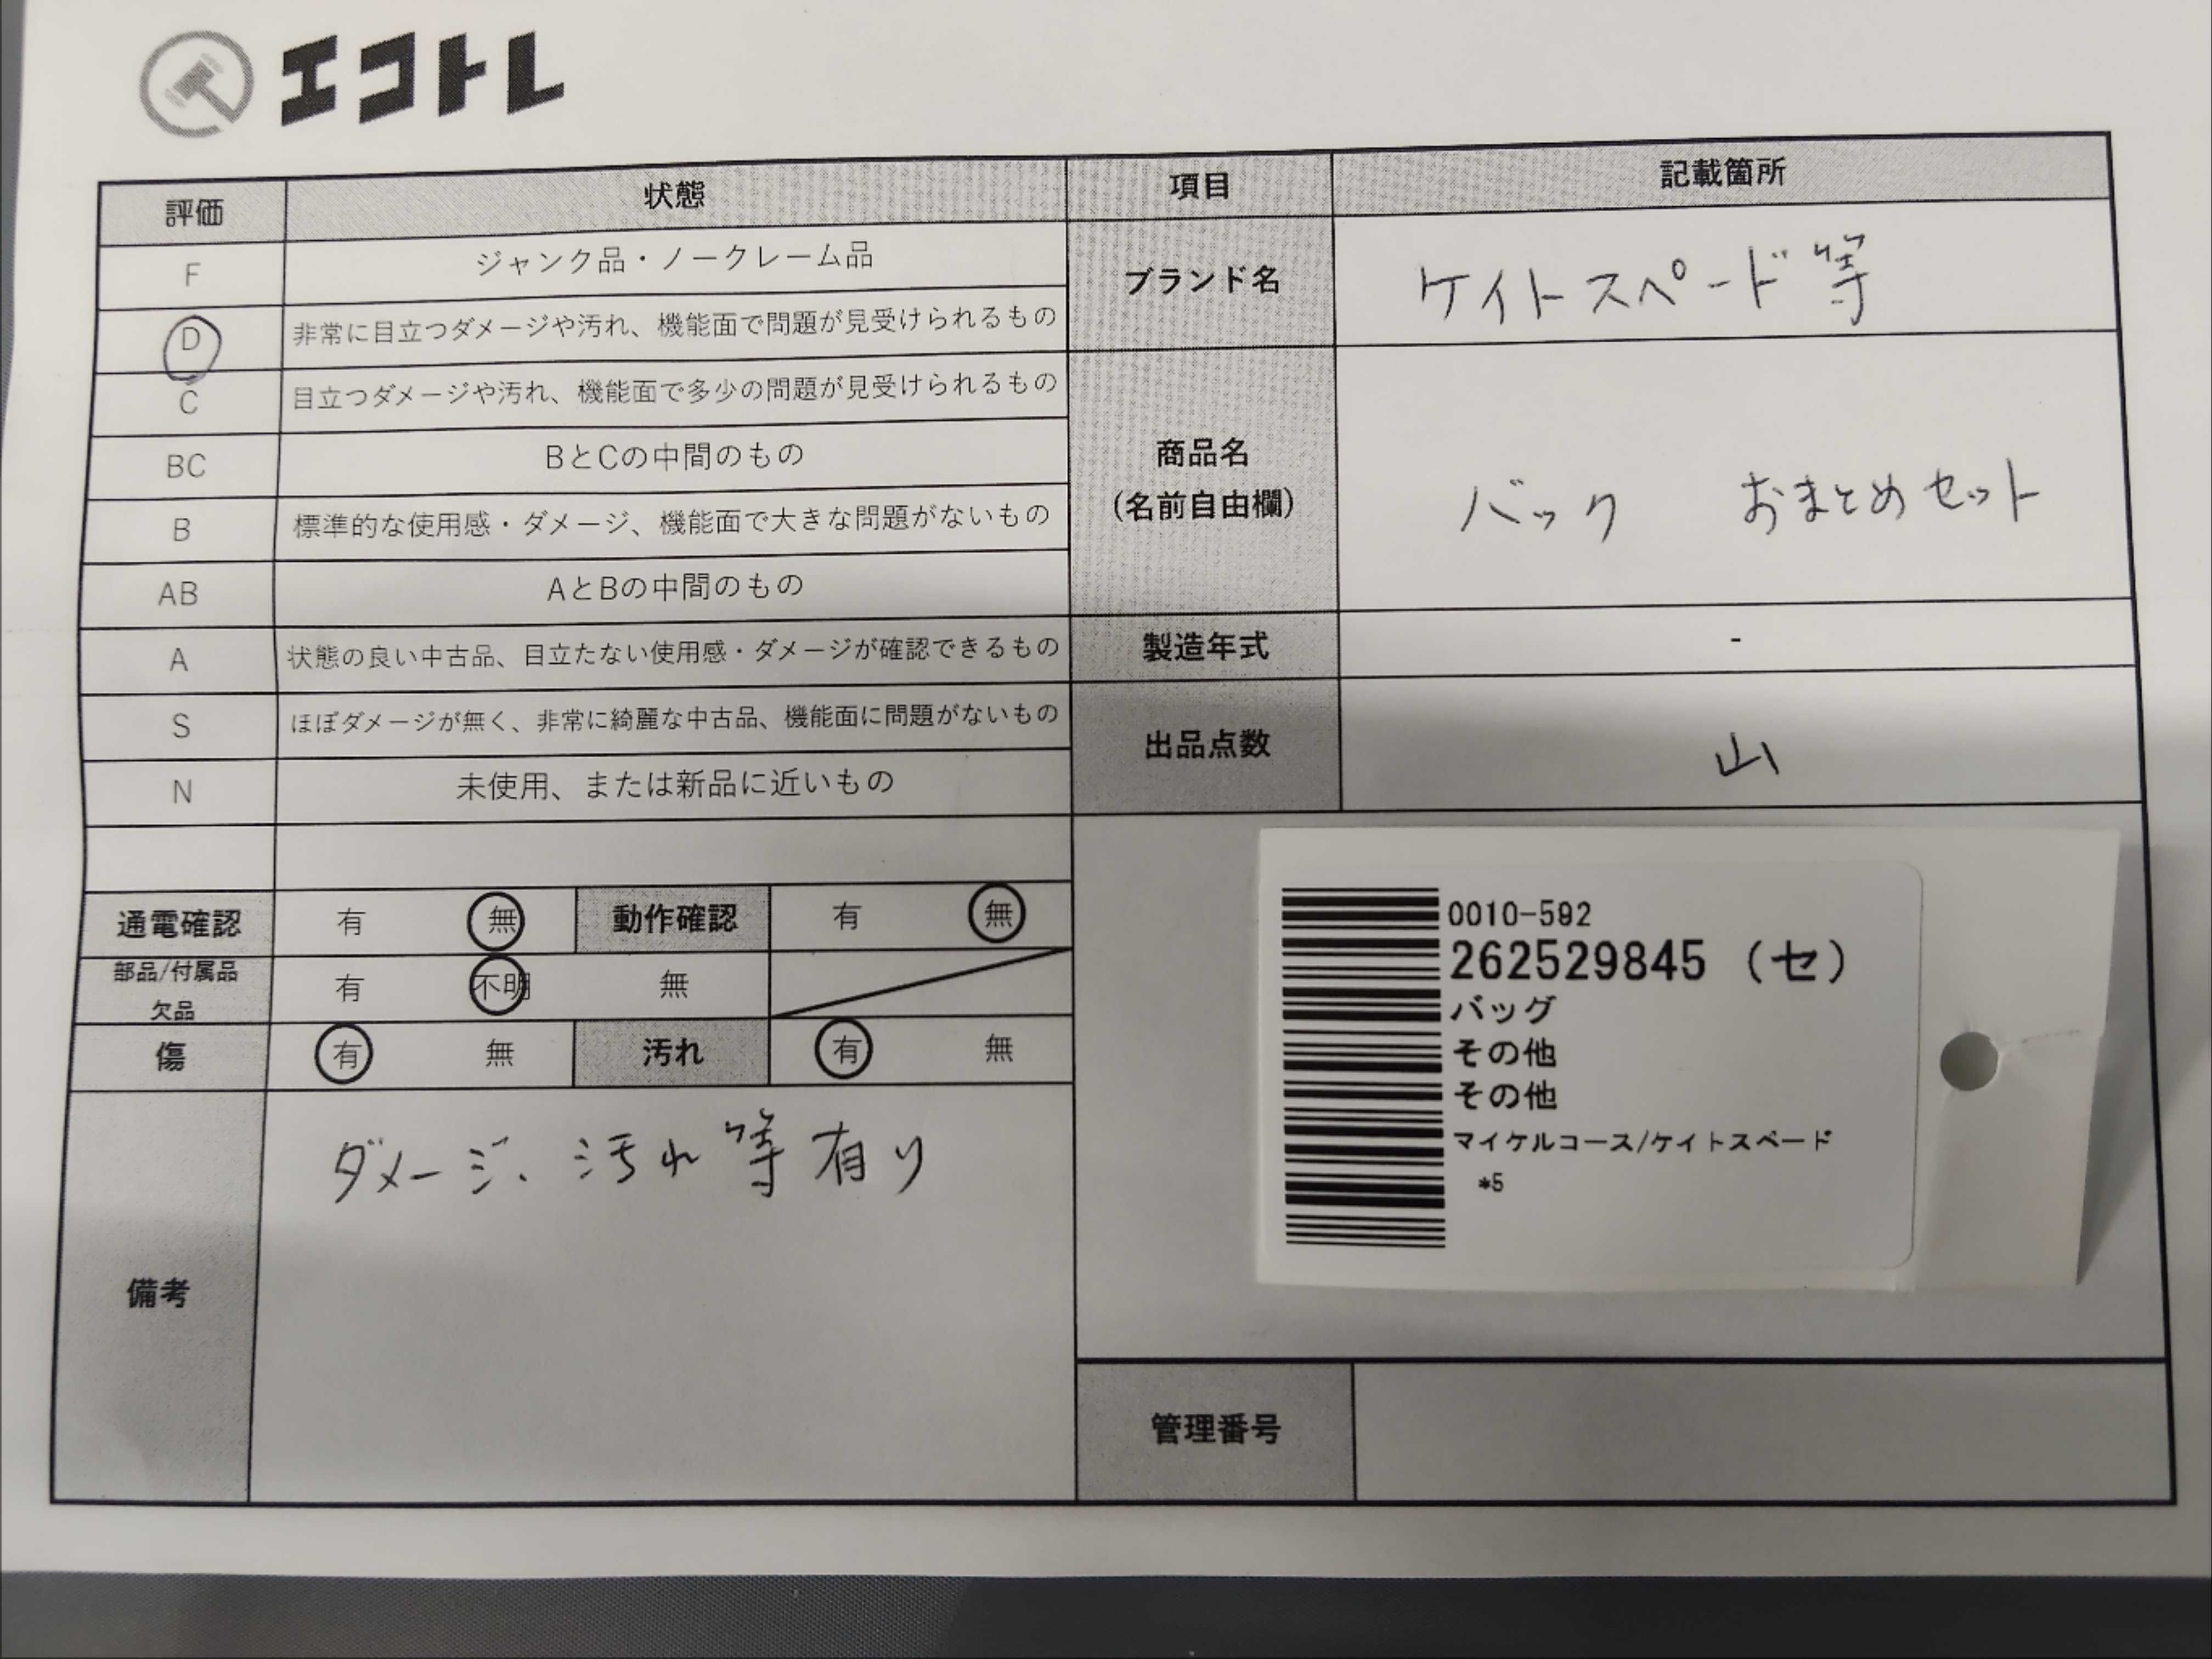 エコトレ
評価 状態 項目 記載箇所
F ジャンク品・ノークレーム品
D 非常に目立つダメージや汚れ、機能面で問題が見受けられるもの
C 目立つダメージや汚れ、機能面で多少の問題が見受けられるもの
BC BとCの中間のもの
B 標準的な使用感・ダメージ、機能面で大きな問題がないもの
AB AとBの中間のもの
A 状態の良い中古品、目立たない使用感・ダメージが確認できるもの
S ほぼダメージが無く、非常に綺麗な中古品、機能面に問題がないもの
N 未使用、または新品に近いもの
ブランド名 ケイトスペード等
商品名
(名前自由欄)
バック おまとめセット
製造年式 -
出品点数 山
通電確認 有 無 動作確認 有 無
部品/付属品
欠品
有 不明 無
傷 有 無 汚れ 有 無
備考 ダメージ、汚れ等有り
0010-592
262529845 (セ)
バッグ
その他
その他
マイケルコース/ケイトスペード
*5
管理番号